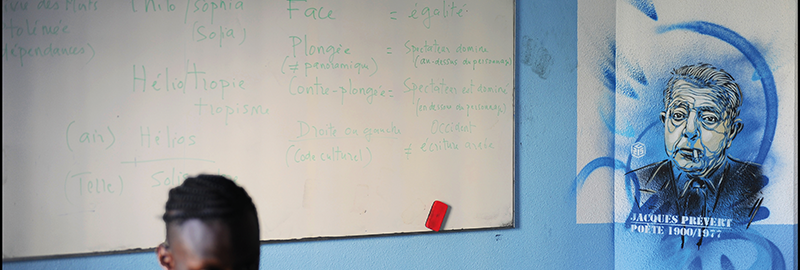 Philo/sophia
(Sofia)
Ptolémée
dépendances)
Hélio/tropie
tropisme
(an) Hélios
(Telle)
Face = égalité
Plongée = Spectateur domine
(≠ panoramique) (au-dessus du personnage)
Contre-plongée = Spectateur est dominé
(en dessous du personnage)
Droite ou gauche Occident
(Code culturel) ≠ écriture arabe
JACQUES PRÉVERT
POÈTE 1900/1977